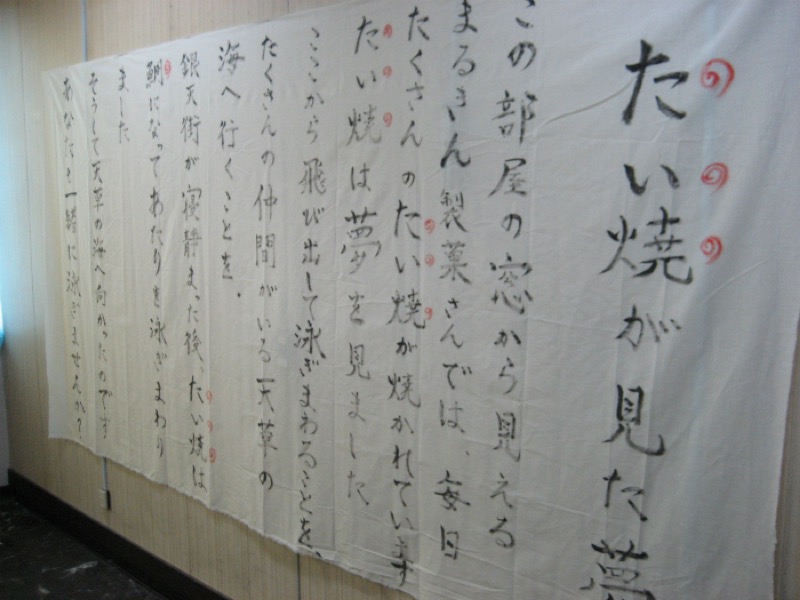 たい焼が見た夢
この部屋の窓から見える
まるきん製菓さんでは、毎日
たくさんのたい焼が焼かれています
たい焼は夢を見ました
ここから飛び出して泳ぎまわることを、
たくさんの仲間がいる天草の
海へ行くことを。
銀天街が寝静まった後、たい焼は
鯛になってあたりを泳ぎまわり
ました
そうして天草の海へ向かったのです
あなたも一緒に泳ぎませんか?